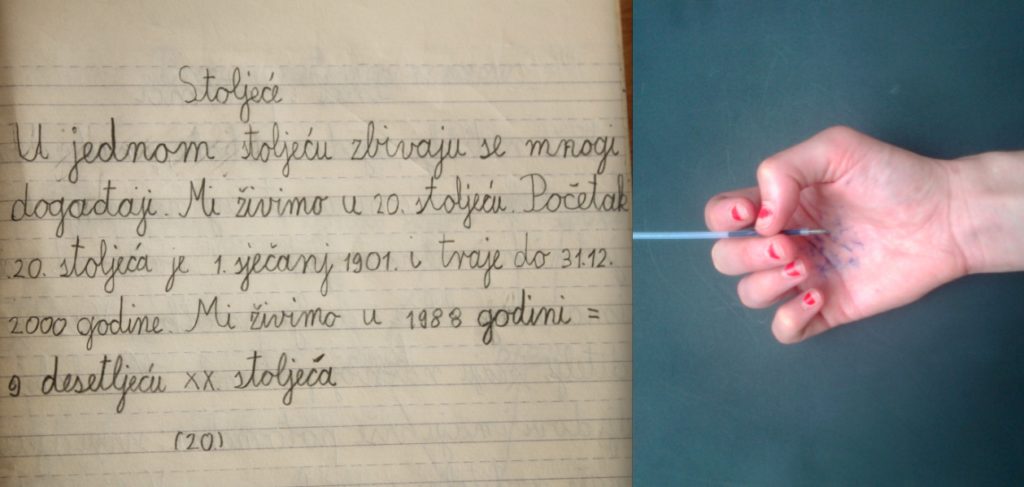 Stoljeće
U jednom stoljeću zbivaju se mnogi
događaji. Mi živimo u 20. stoljeću. Početak
20. stoljeća je 1. sječanj 1901. i traje do 31.12.
2000 godine. Mi živimo u 1988 godini =
9. desetljeću XX. stoljeća
(20.)